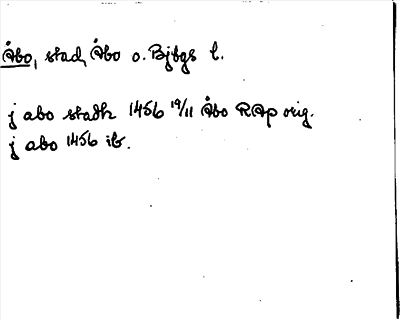 Åbo, stad, Åbo o. Bjbgs l.
j abo stadh 1456 19/11 Åbo RAp orig.
j abo 1456 ib.